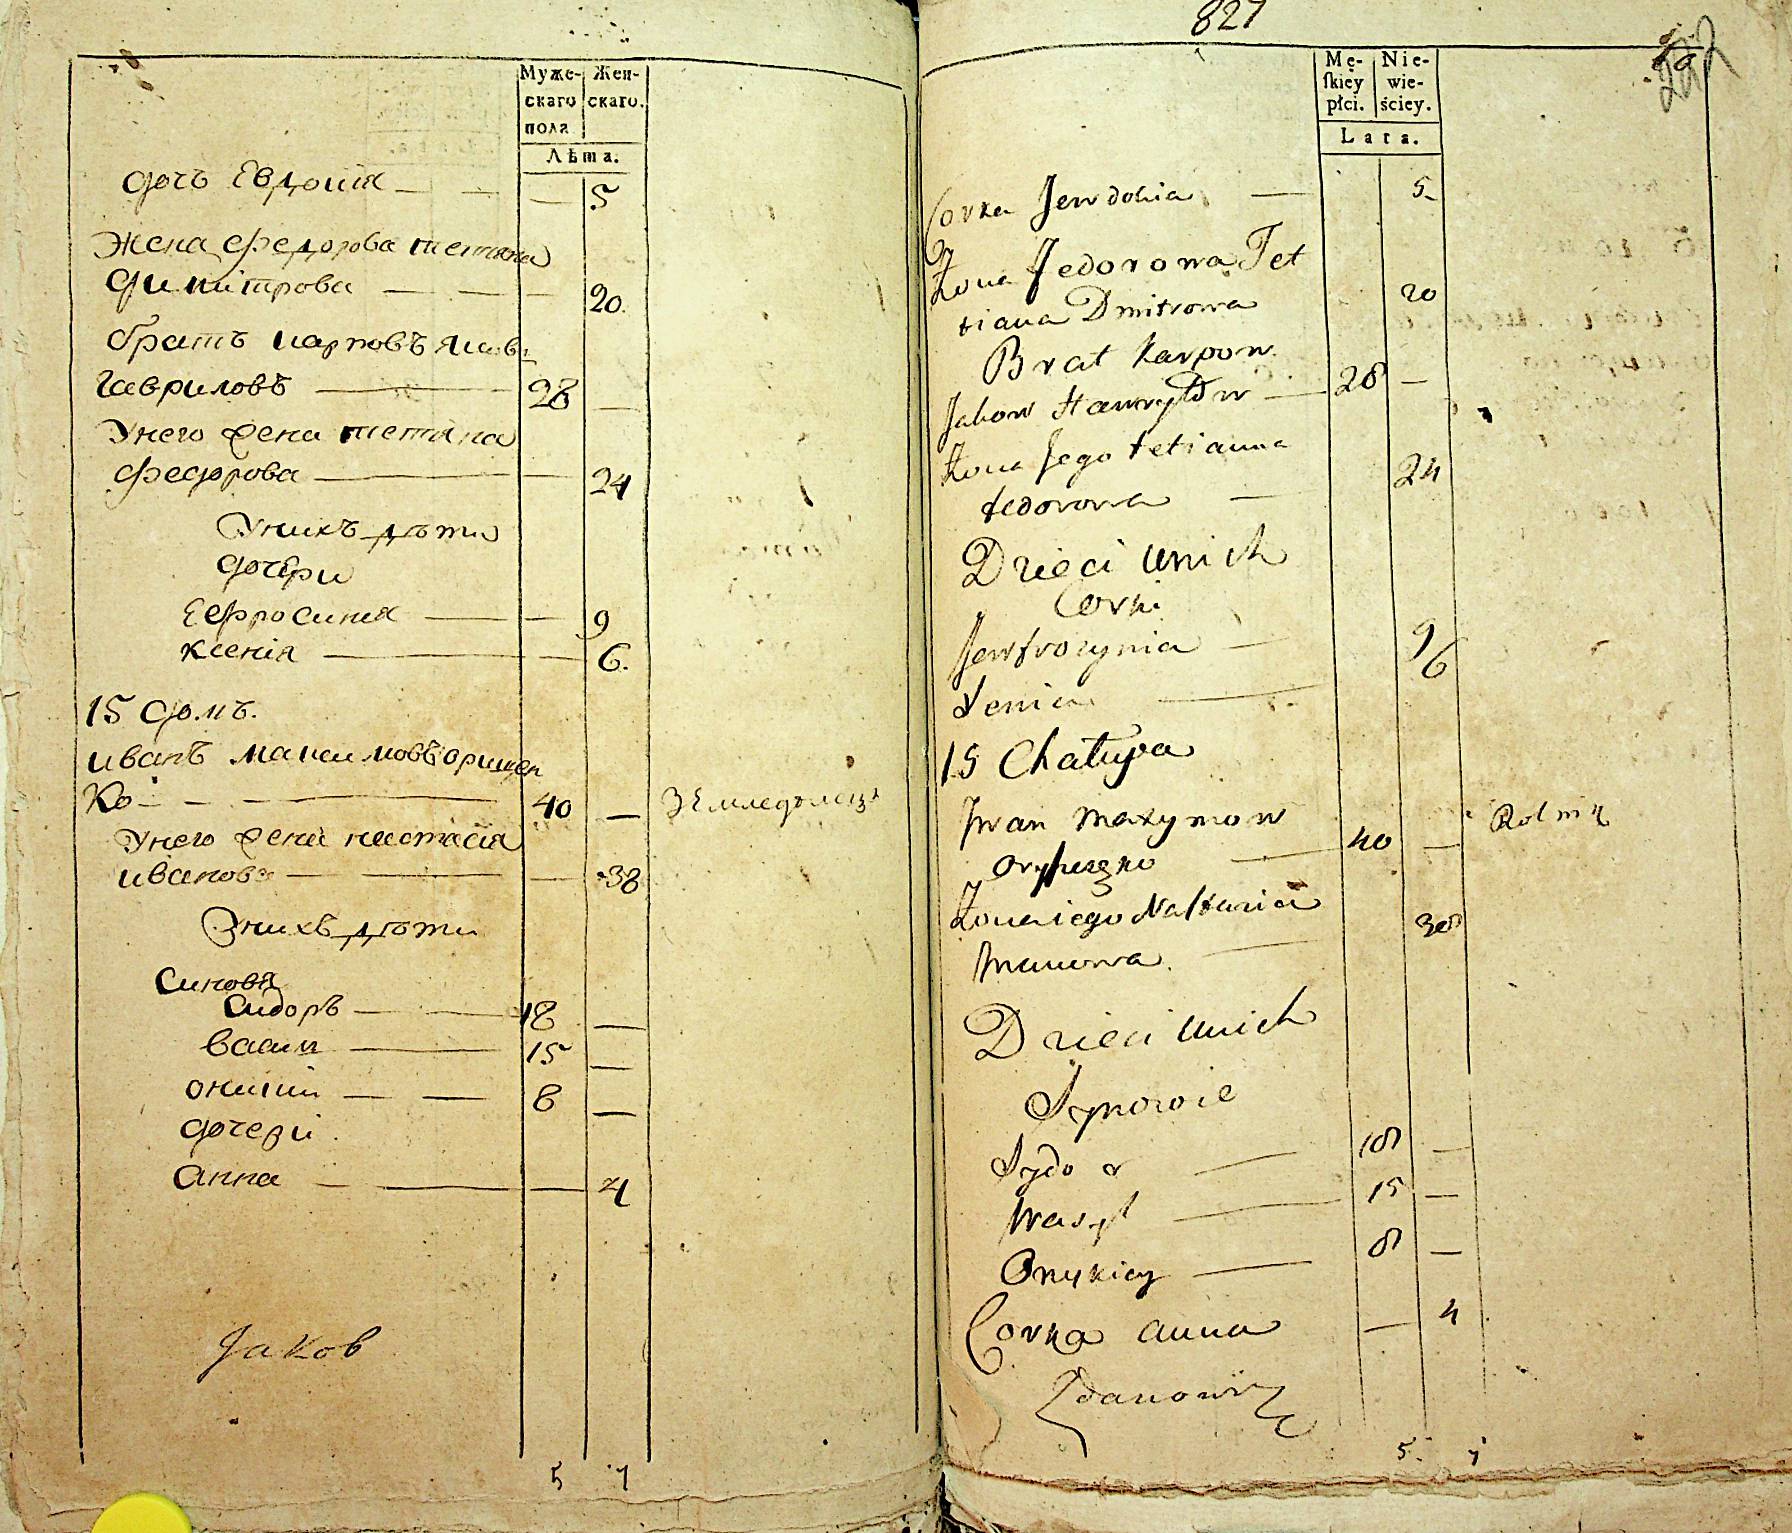 Муже-
скаго
пола
Жен-
скаго.
Лѣта.
дочь Евдокія 5
Жена федорова тетяна
димитрова 20.
братъ карповъ яковъ
гавриловъ 28
Унего жена тетяна
федорова 24
Унихъ дѣти
дочери
Еефросиния 9
ксенія 6.
15 домъ.
иванъ максимовъ оришен
ко 40 Земледѣлецъ
Унего жена настасія
иванова 38
Унихъ дѣти
синовя
Сидоръ 18
васил 15
оникій 8
дочери
анна 4
Jakob
5 7
827
222
Mę-
ſkiey
płci.
Nie-
wie-
ściey.
Lata.
Corka Jewdokia 5
Żona Fedorowa Tet
tiana Dmitrowa 20
Brat Karpow
Jakow Hawryłow 28
Żona Jego tetianna
fedorowa 24
Dzieci unich
Corki
Jewfrozynia 9
Xenia 6
15 Chałupa
Iwan Maxymow
oryszczko 40 Rolnik
Żona iego Nastazia
Iwanowa 38
Dzieci unich
Synowie
Sydor 18
Wasyl 15
Onykiey 8
Corka anna 4
Zdanowicz
5. 7